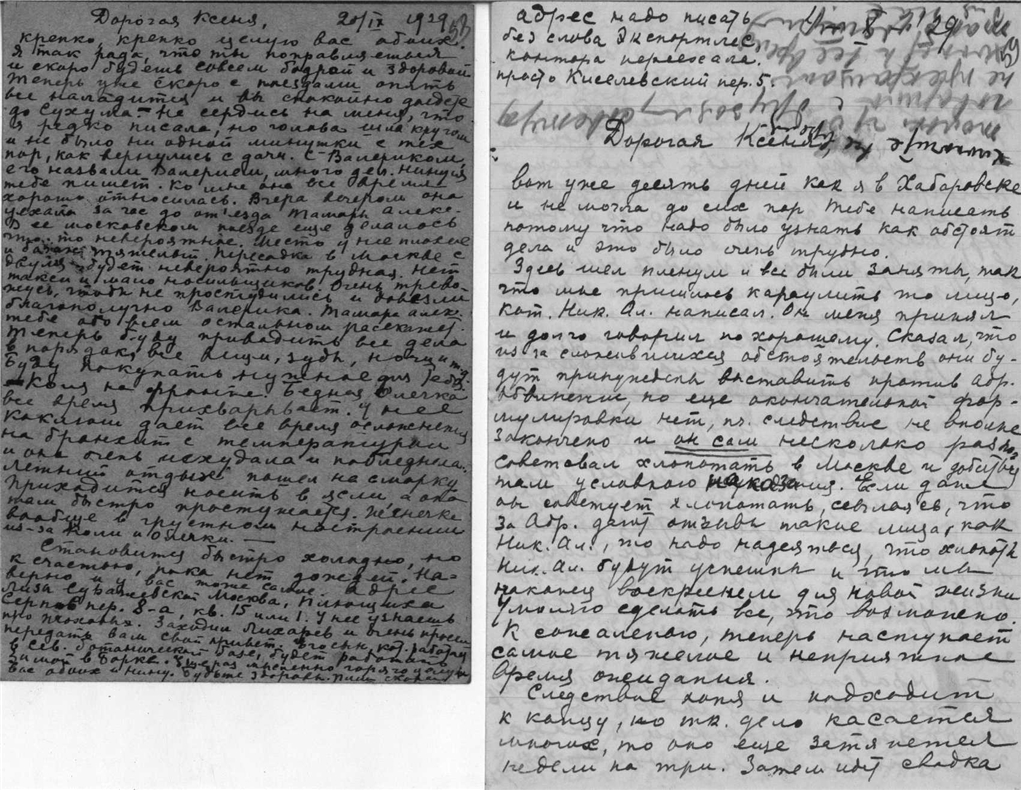 Дорогая Ксеня, 20/IX 1929
крепко крепко целую вас обоих.
Я так рада, что ты поправляешься
и скоро будешь совсем бодрой и здоровой
Теперь уже скоро с поездами опять
все наладится и вы спокойно доедете
до Сухума. Не сердись на меня, что
я редко писала, но голова шла кругом
и не было ни одной минутки с тех
пор, как вернулись с дачи. С Валериком,
его назвали Валерием, много дел. Нинуся
тебе пишет. Ко мне она все время
хорошо относилась. Вчера вечером она
уехала за час до отъезда Тамары Алекс.
В ее московском поезде еще делалось
что-то невероятное. Место у нее плохое
и багаж тяжелый. Пересадка в Москве с
двумя будет невероятно трудная. Нет
такси и мало носильщиков. Очень трево-
жусь, чтобы не простудились и довезли
благополучно Валерика. Тамара Алек.
тебе обо всем остальном расскажет.
Теперь буду приводить все дела
в порядок, все вещи, зубы,
Буду покупать нужное для тебя.
Коля на фронте! Бедная Олечка
все время прихварывает. У нее
коклюш дает все время осложнения
на бронхит с температурой
и она очень исхудала и побледнела.
Летний отдых пошел на смарку
Приходится носить в ясли а она
там быстро простужается. Женечка
вообще в грустном настроении
из-за Коли и Олечки. —
Становится быстро холодно, но
к счастью, пока нет дождей. На-
верно и у вас тоже самое. Адрес
Лиза Москва, Плющиха
Серпов пер. 8-а, кв. 15 или 1. У нее узнаешь
про плановых. Заходил Лихарев и очень просил
передать вам свой привет. Его сын, кот. работал
в Сев. ботанической базе, будет работать
зимой в Боржв. Еще раз мысленно горячо целую
вас обоих и Нину. Будьте здоровы. Пиши скорей
адрес надо писать 4 8 29
без слова Экспортлес
контора переехала.
просто Киселевский пер. 5.
Дорогая Ксеня,
вот уже десять дней как я в Хабаровске
и не могла до сих пор тебе написать
потому что надо было узнать как обстоят
дела и это было очень трудно.
Здесь шел пленум и все были заняты, так
что мне пришлось караулить то лицо,
кот. Ник. Ал. написал. Он меня принял
и долго говорил по хорошему. Сказал, что
из за сложившихся обстоятельств они бу-
дут принуждены выставить против Абр.
обвинение, но еще окончательной фор-
мулировки нет, пч. следствие не вполне
закончено и он сам несколько раз
советовал хлопотать в Москве и добиваться
там условного наказания. Если даже
он советует хлопотать, ссылаясь, что
за Абр. дают отзывы такие лица, как
Ник. Ал., то надо надеяться, что хлопоты
Ник. Ал. будут успешны и что мы
наконец воскреснем для новой жизни
Умоляю сделать все, что возможно.
К сожалению, теперь наступает
самое тяжелое и неприятное
время ожидания.
Следствие хотя и подходит
к концу, но тк. дело касается
многих, то оно еще затянется
недели на три. Затем идет сводка